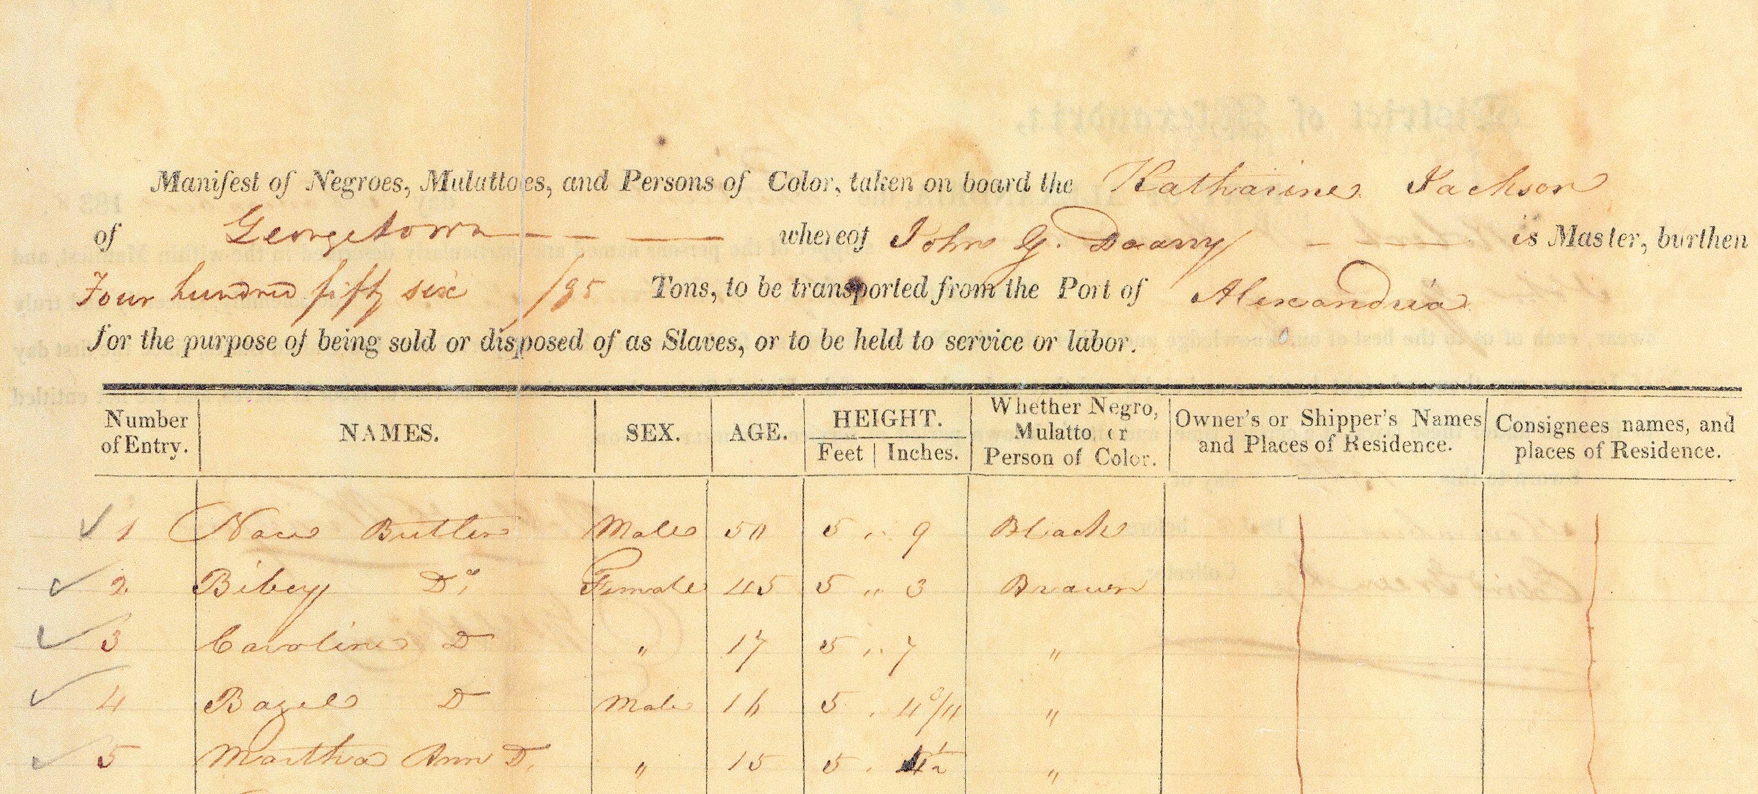 Manifest of Negroes, Mulattoes, and Persons of Color, taken on board the Katharine Jackson
of Georgetown whereof John G. is Master, burthen
Four hundred fifty six /95 Tons, to be transported from the Port of Alexandria
for the purpose of being sold or disposed of as Slaves, or to be held to service or labor.
Number of Entry. NAMES. SEX. AGE. HEIGHT. Feet Inches. Whether Negro, Mulatto, or Person of Color. Owner's or Shipper's Names and Places of Residence. Consignees names, and places of Residence.
1 Nace Butler Male 50 5 " 9 Black
2 Bibey Do. Female 45 5 " 3 Brown
3 Caroline D " 17 5 " 7 "
4 Bazel D Male 16 5 "
5 Martha Ann D. " 15 5 "